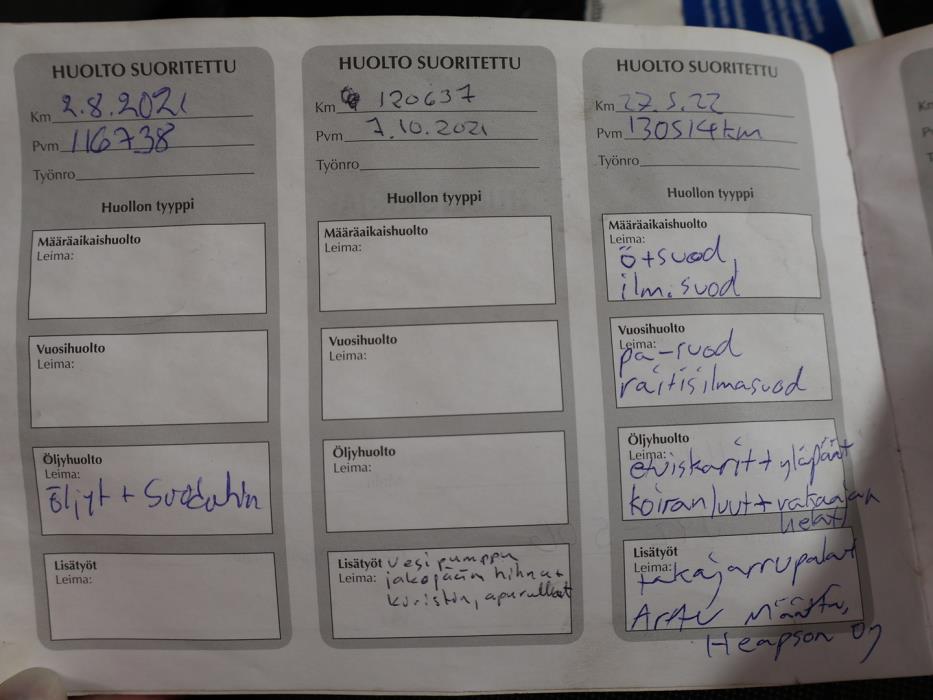 HUOLTO SUORITETTU
Km 2.8.2021
Pvm 116738
Työnro
Huollon tyyppi
Määräaikaishuolto
Leima:
Vuosihuolto
Leima:
Öljyhuolto
Leima:
öljyt + Suodatin
Lisätyöt
Leima:
HUOLTO SUORITETTU
Km 120637
Pvm 7.10.2021
Työnro
Huollon tyyppi
Määräaikaishuolto
Leima:
Vuosihuolto
Leima:
Öljyhuolto
Leima:
Lisätyöt vesipumppu
Leima: jakopään hihnat
kiristin, apurullat
HUOLTO SUORITETTU
Km 27.5.22
Pvm 130514km
Työnro
Huollon tyyppi
Määräaikaishuolto
Leima:
ö+suod,
ilm.suod
Vuosihuolto
Leima:
pa-suod
raitisilmasuod
Öljyhuolto
Leima:
etuiskarit + yläpäät
koiranluut + vakaajan
helat
Lisätyöt
Leima:
takajarrupalat
Arttu
Heapson Oy